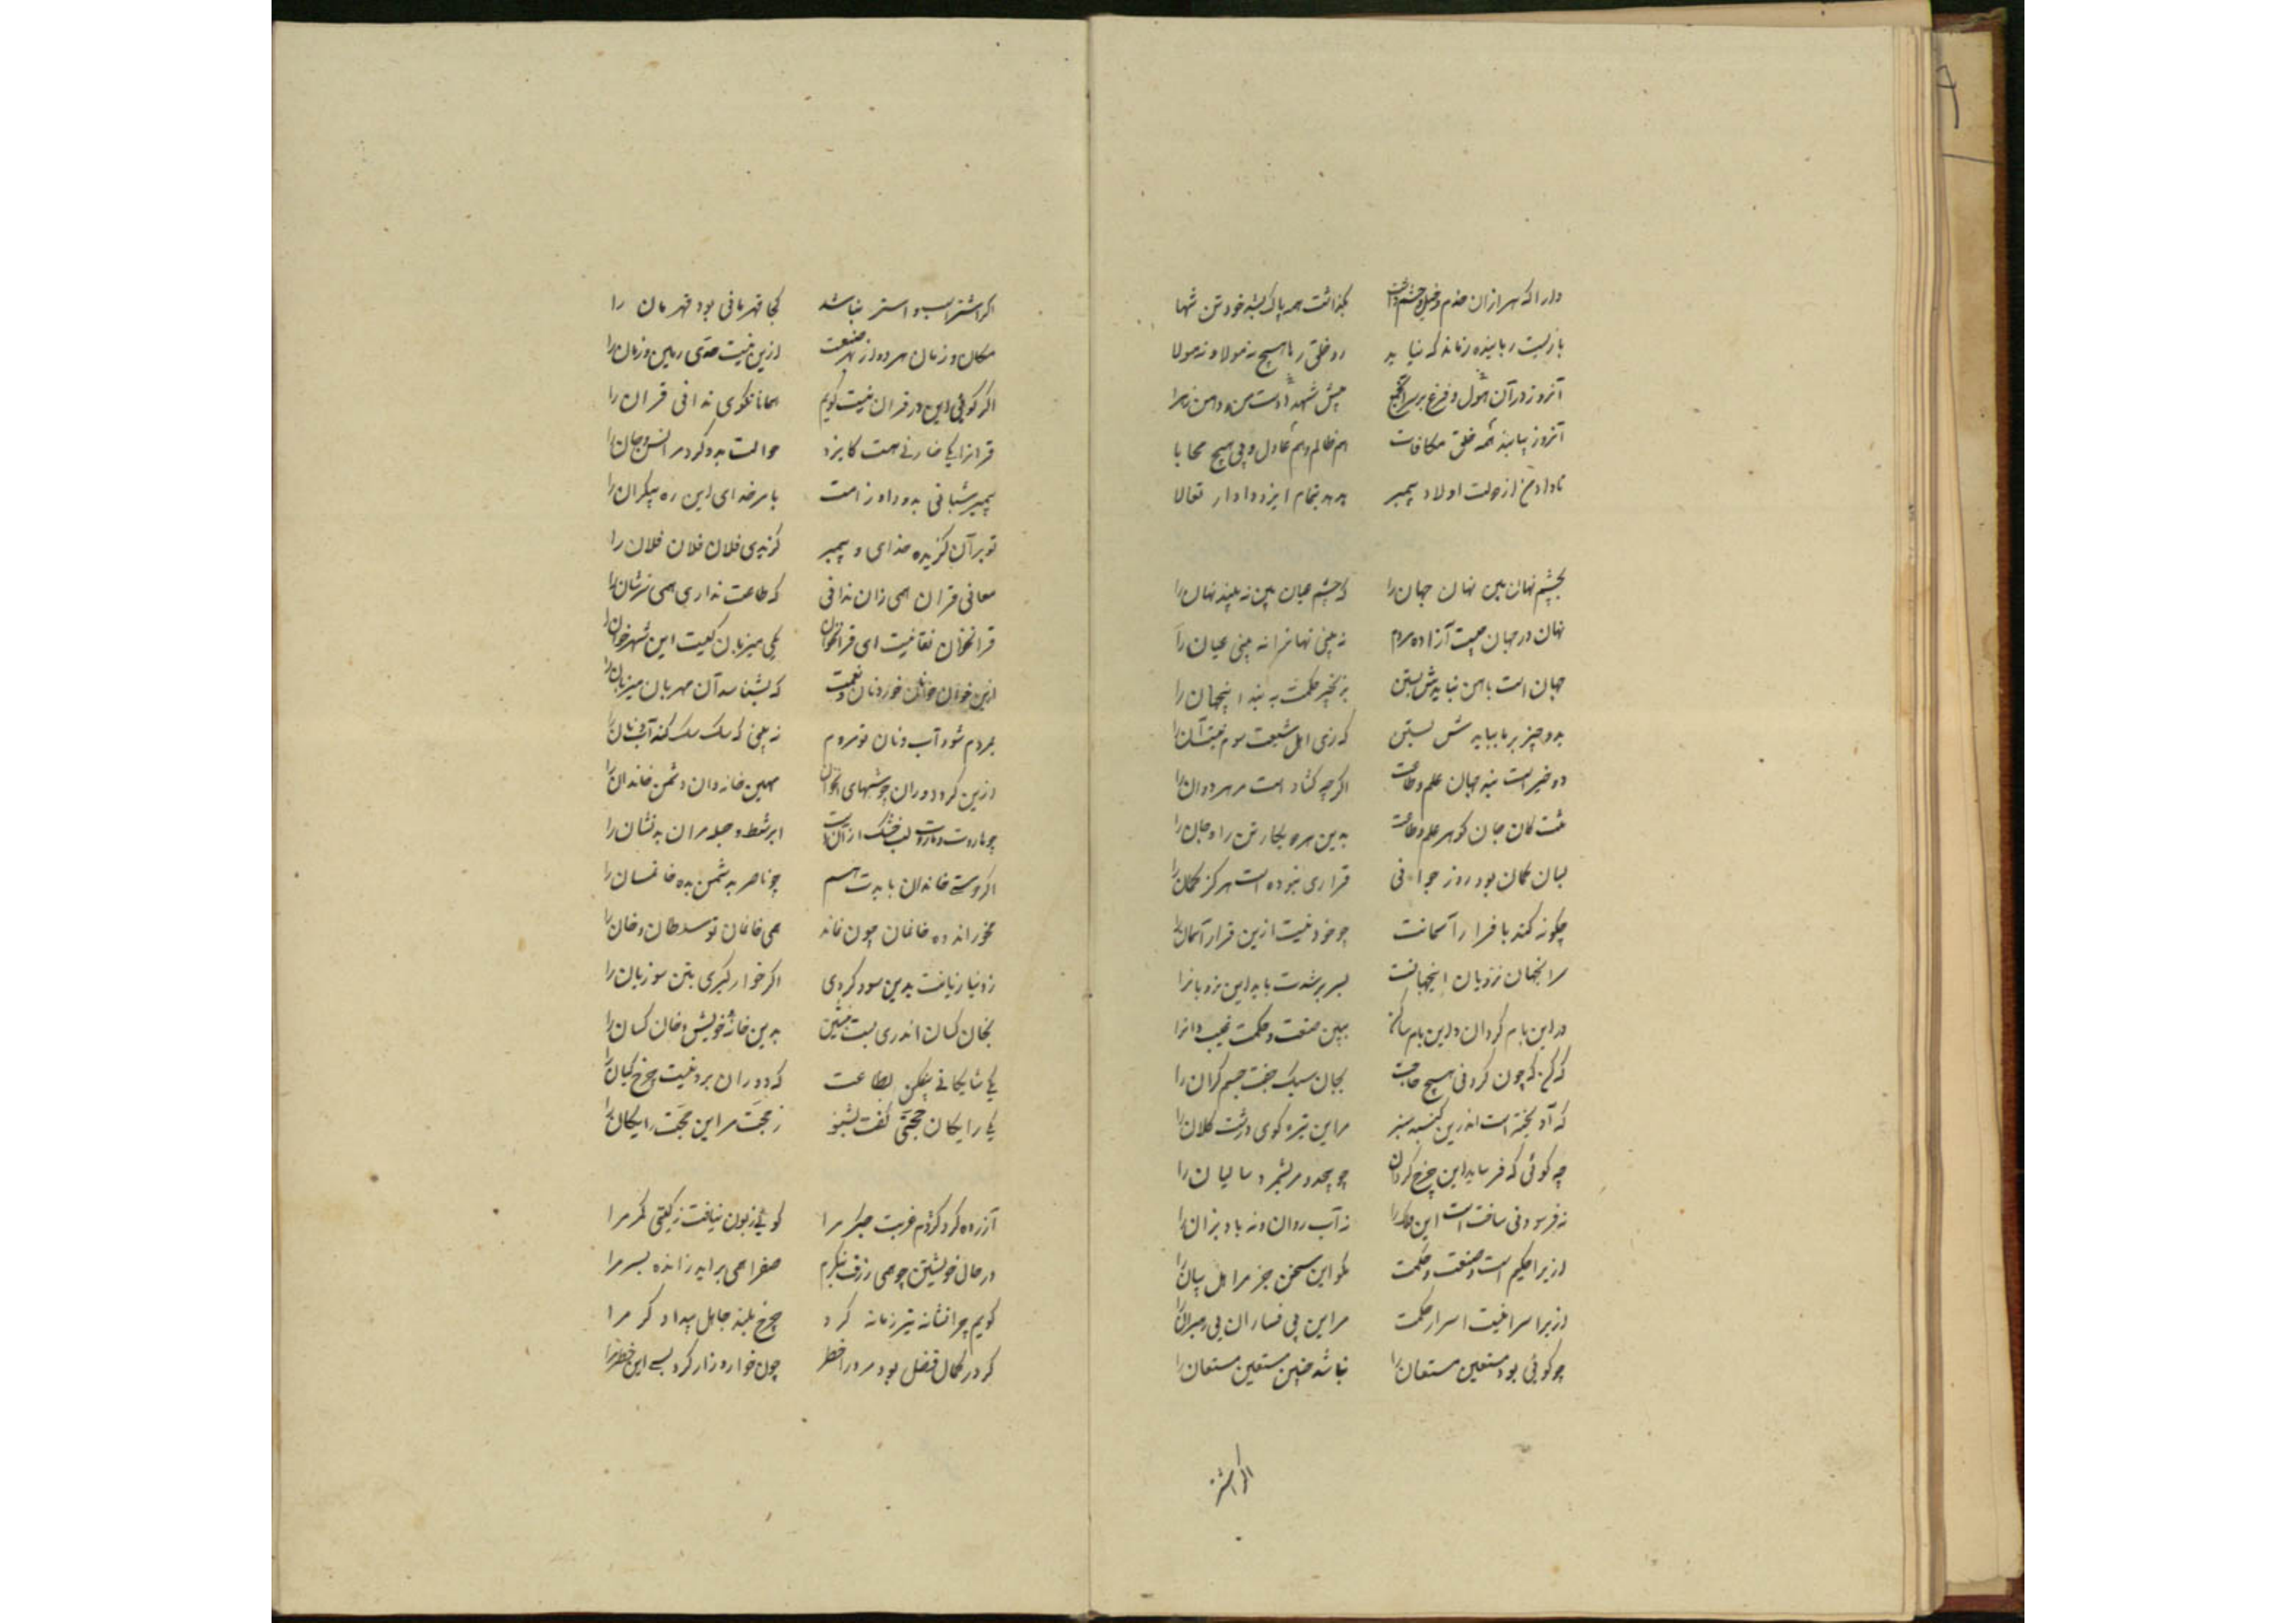 دارا که هزاران خدم و خیل و حشم داشت بگذاشت همه پاک بشد خود تن تنها
بازیست رباینده زمانه که نیابد زو خلق رها هیچ نه مولا و نه مولا
آنروز در آن هول و فزع بر سر آن جمع پیش شهدا دست من و دامن زهرا
آنروز بیابند همه خلق مکافات هم ظالم و هم عادل و بی هیچ محابا
تا داد من از دولت اولاد پیمبر بدهد بتمام ایزد دادار تعالا
بچشم نهان بین نهان جهان را که چشم عیان بین نه بیند نهان را
نهان در جهان چیست آزاده مردم نه بینی نهانرا نه بینی عیان را
جهان است باهن نبایدش بستن بزنجیر حکمت به بند اینجهان را
بدو چیز بر ما بباید ش بستن که زی اهل شیعت سوم نیست آن را
دو خیر است بند جهان علم و طاعت اگرچه گشاد است مر هر دوان را
تنت کان جان گوهر علم و طاعت بدین هر دو بگمار تن را و جان را
بسان گمان بود روز جوانی قراری نبوده است هرگز گمان را
چگونه کند با قرار آسمانت چو خود نیست ازین قرار آسمان را
سر آنجهان نردبان اینجهانست بسر برشدت باید این نردبانرا
در این بام گردان و این بام ساکن ببین صنعت و حکمت غیب دانرا
که گر که چون کرد بی هیچ حاجت بجان سبک جفت جسم گران را
که آویخته است اندرین گنبد سبز مر این تیره گوی درشت کلان را
چه گوئی که فرساید این چرخ گردان چو بیحد و مر بشمرد سالیان را
نه فرسودنی ساخت است این فلک را نه آب روان و نه باد بزان را
ازیرا حکیم است و صنعت و حکمت مگو این سخن جز مر اهل بیان را
ازیرا سزا نیست اسرار حکمت مر این بی فساران بی رهبران را
چو گوئی بود مستعین مستعان را نباشد چنین مستعین مستعان را
اگر اشتر
اگر اشتر اسب و استر نباشد کجا قهرمانی بود قهرمان را
مکان و زمان هر دو از بهر صنعت ازین نیست حدی زمین و زمان را
اگر گوئی این در قران نیست گویم همانا نکوی ندانی قران را
قرانرا یکی خازنی هست کایزد حوالت بدو کرد مر انس و جان را
پیمبر شبانی بدو داد ز امت بامر خدای این ره بیکران را
تو بر آن گزیده خدای و پیمبر گزیدی فلان فلان فلان را
معانی قران همی زان ندانی که طاعت نداری همی ترشان را
قرآنخوان نقانیست ای قرآنخوان یکی میزبان کیست این شهره خوان را
ازین خوان خوانان خورد نان و نعمت که بشناسد آن مهربان میزبان را
بمردم شود آب و نان تو مردم نه بینی که سگ سگ کند آب و نان را
ازین کرد دوران چو شبهای انخوان مهین خانه دان دشمن خاندان را
چو هاروت و ماروت لب خشک ازآنست ابر شط و جله مر ان بد نشان را
اگر دوستی خاندان بایدت هم چو ناصر بدشمن بده خانمان را
مخور انده خانمان چون نماند همی خانمان تو سلطان و خان را
ز دنیا زیانت بدین سود کردی اگر خوار گیری بتن سوزیان را
بخان کسان اندری پست منشین بدین خانه خویش و خان کسان را
یکی شایگانی بیفکن بطاعت که دوران بر او نیست چرخ کیان را
یکی رایگان حجتی گفت بشنو ز حجت مر این حجت رایگان را
آزرده کرد کژدم غربت جگر مرا گوئی زبون نیافت ز گیتی مگر مرا
در حال خویشتن چو همی ژرف بنگرم صفرا همی براید ز انده بسر مرا
گویم چرا نشانه تیر زمانه کرد چرخ بلند جاهل بیدادگر مرا
گر در کمال فضل بود مرد را خطر چون خوار و زار کرد بس این خطر مرا